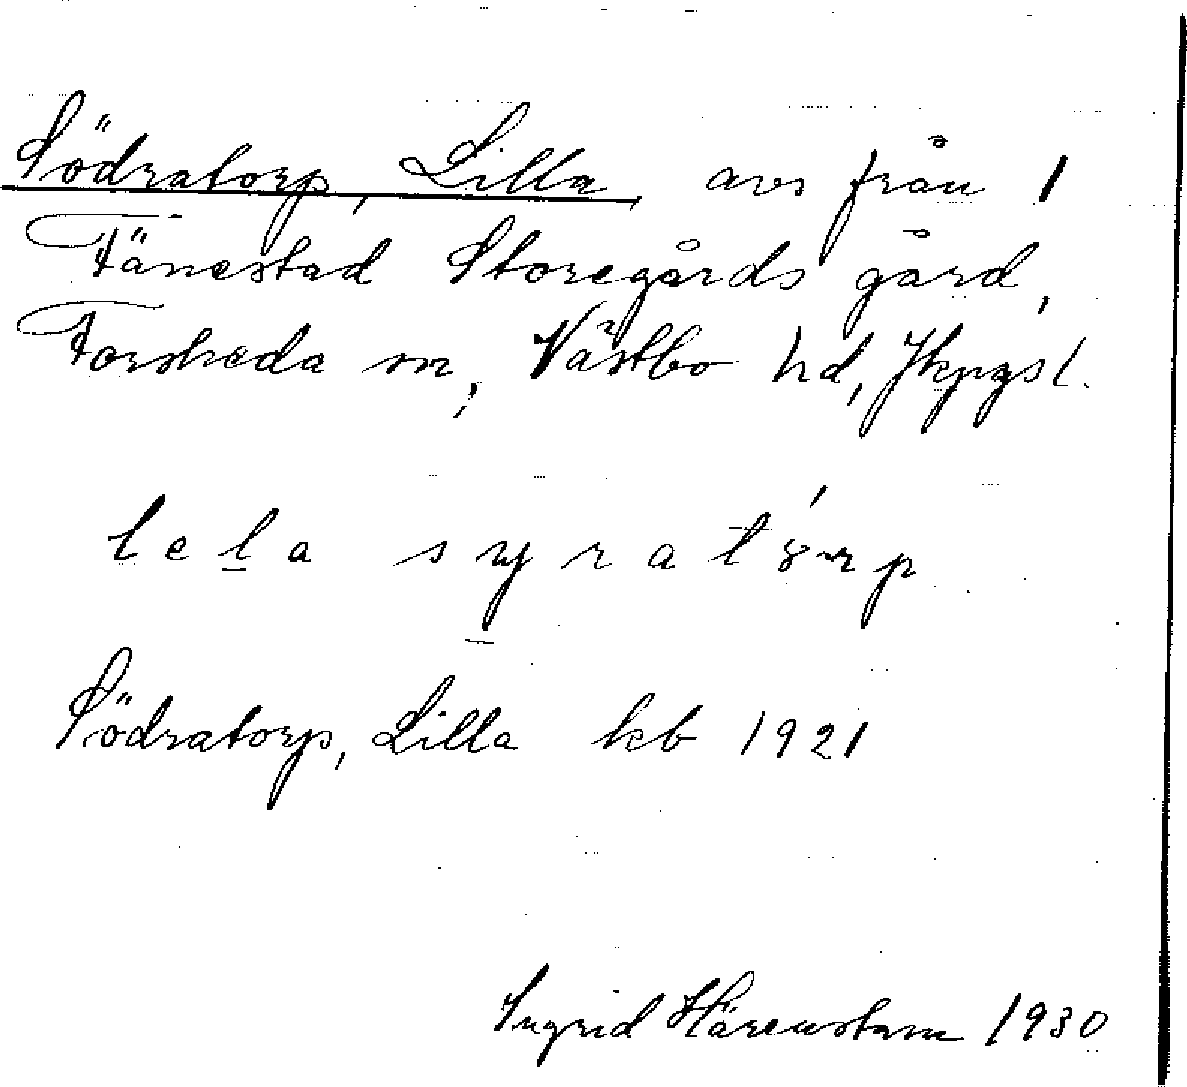 Södratorp, Lilla avs från 1
Tånestad Storegårds gård,
Forsheda sn, Västbo hd, Jkpgs l.
lela syratórp
Södratorp, Lilla kb 1921
Ingrid Härenstam 1930